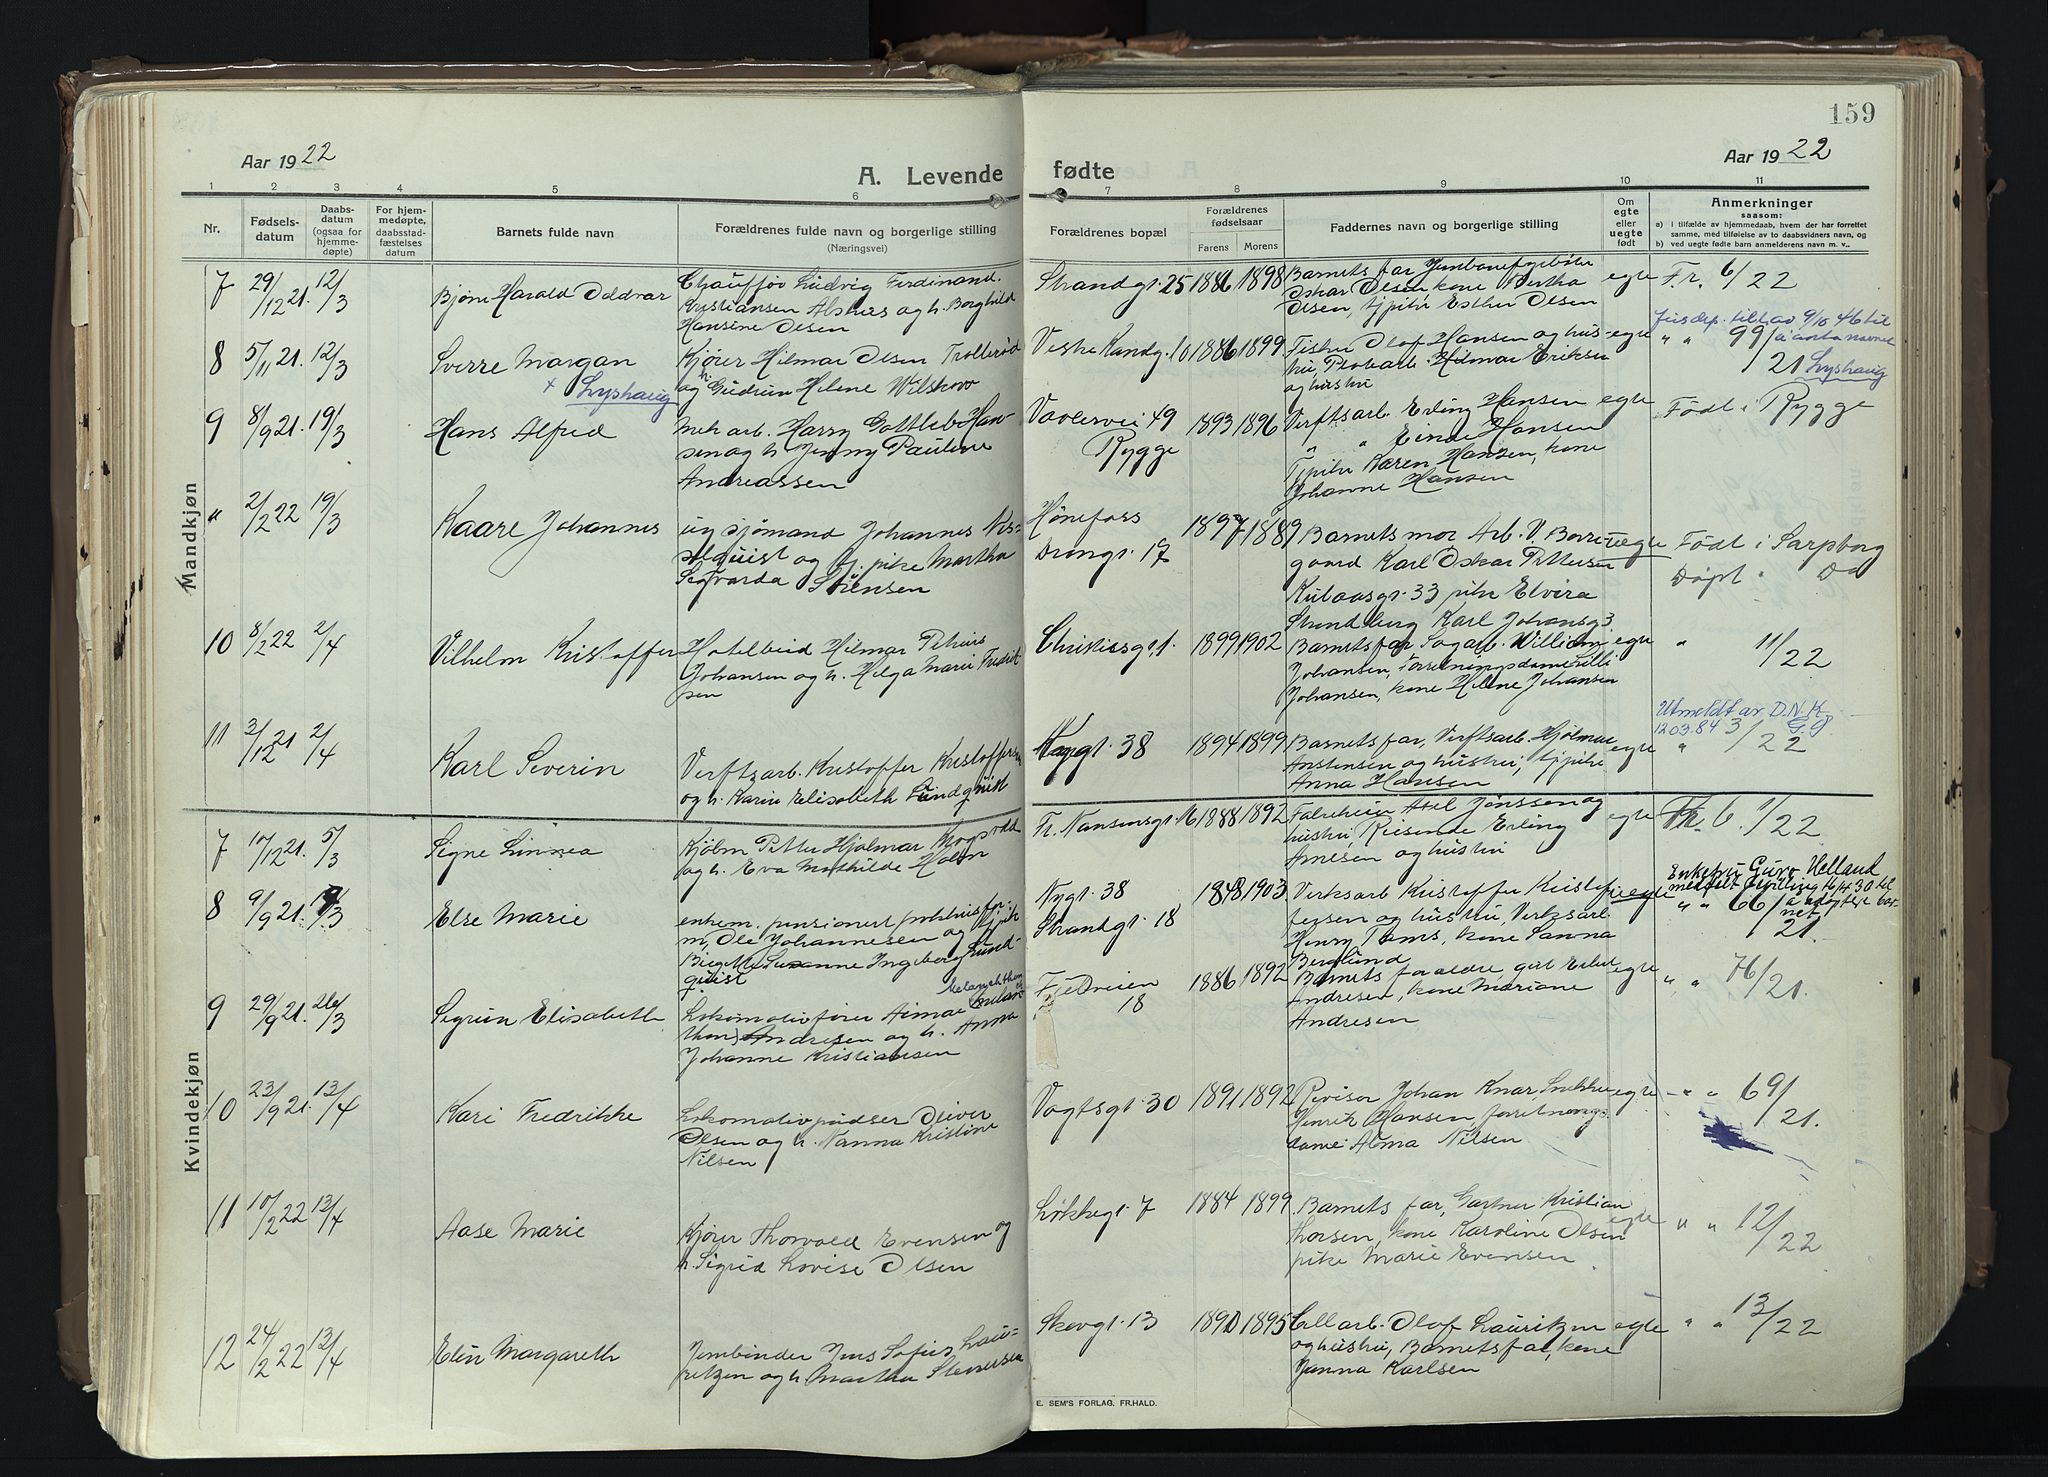 159
Aar 1922
A. Levende fødte
Aar 1922
1 2 3 4 5 6 7 8 9 10 11
Nr.
Fødsels-
datum
Daabs-
datum
(ogsaa for
hjemme-
døpte)
For hjem-
medøpte,
daabsstad-
fæstelses
datum
Barnets fulde navn
Forældrenes fulde navn og borgerlige stilling
(Næringsvei)
Forældrenes bopæl
Forældrenes
fødselsaar
Farens Morens
Faddernes navn og borgerlige stilling
Om
egte
eller
uegte
født
Anmerkninger
saasom:
a) I tilfælde av hjemmedaab, hvem der har forrettet
samme, med tilføielse av to daabsvidners navn, og
b) ved uegte fødte barn anmelderens navn m. v..
Mandkjøn
7 29/12 21. 12/3 Bjørn Harald Oddvar
Chauffør Ludvig Ferdinand
Kristiansen Alsnes og h. Borghild
Hansine Olsen
Strandgt. 25 1886 1898
Barnets far
Oskar Olsen kone Bertha
Olsen, tj.pike Esther Olsen
egte F.r. 6/22
8 5/11 21. 12/3 Sverre Morgan
+ Lyshaug
Kjører Hilmar Olsen Trollerød
og h. Gudrun Helene Wilskow
10 1886 1899
Fisker Olof Hansen og hus-
tru, Hilmar Eriksen
og hustru
egte " " 99/21
9/10 46 til
navnet
Lyshaug
9 8/9 21. 19/3 Hans Alfred
Mek arb. Harry Gottleb Han-
sen og h. Jenny Pauline
Andreassen
Vaalervei 49
Rygge
1893 1896
Verftsarb. Erling Hansen
" " Hansen
Tj.pike Karen Hansen, kone
Johanne Hansen
egte Født i Rygge
" 2/2 22 19/3 Kaare Johannes
ug sjømand Johannes
og tj. pike Martha
Sørensen
Hønefoss
Drongt. 17
1897 1889
Barnets mor Arb. V. Borre-
gaard Karl Oskar Pettersen
Kulaasgt. 33 pike Elvira
Strindberg Karl Johansg 3
uegte Født i Sarpborg
Døpt " Do
10 8/2 22 2/4 Vilhelm Kristoffer
Hilmar
Johansen og h. Helga Marie Fredrik-
sen
Christiesgt. 1. 1899 1902
Barnets far, Sagarb. William
Johansen, forretningsdame
Johansen, kone Helene Johansen
egte " 11/22
11 3/12 21 2/4 Karl Severin
Verftsarb. Kristoffer Kristoffersen
og h. Karin Elisabeth Lundquist
38 1894 1899
Barnets far, Verftsarb. Hjalmar
Anstensen og hustru, tj.pike
Anna Hansen
egte Utmeldt av D.N.K.
12.03.84 G.G.
" 3/22
Kvindekjøn
7 10/12 21. 5/3 Signe Linnea
Petter Hjalmar
og h. Eva Mathilde Holm
Fr. Nansensgt. 16 1888 1892
Axel Jønssen og
hustru, Reisende Erling
Arnesen og hustru
egte 1/22
8 9/9 21. Else Marie
enkem. pensionert
Ole Johannesen og tj.pike
Birgitte Susanne Ingeborg Lund-
quist
Nygt. 38
Strandgt. 18
1848 1903
Verksarb Kristoffer Kristof-
fersen og hustru, Verksarb.
Henry Toms, kone Sanna
Berglund
uegte Enkefru Guro Helland
" " 66/21.
9 29/9 21. 26/3 Sigrun Elisabeth
Lokomotivfører
Andresen og h. Anna
Johanne Kristiansen
Fjeldveien
18
1886 1892
Barnets foraldre,
Andresen, kone Mariane
Andresen
egte " " 76/21.
10 23/9 21. 13/4 Kari Fredrikke
Lokomotivpudser Oliver
Olsen og h. Nanna Kristine
Nilsen
Vogtsgt. 30 1891 1892
Revisor Johan Knar, Snekker
Henrik Hansen forretnings-
dame Alma Nilsen
egte " " 69/21.
11 10/2 22 13/4 Aase Marie
Kjører Thorvald Evensen og
h. Sigrid Lovise Olsen
Løkkegt. 7 1884 1899
Barnets far, Gartner Kristian
Thorsen, kone Karoline Olsen
pike Marie Evensen
egte " " 12/22
12 24/2 22 13/4 Elin Margareth
Jernbinder Jens Sofus Lau-
ritzen og h. Martha Stenersen
Skovgt. 13 1890 1895
Cellarb. Olof Lauritzen
og hustru, Barnets far, kone
Janna Karlsen
egte " " 13/22
E. SEM'S FORLAG, FR.HALD.